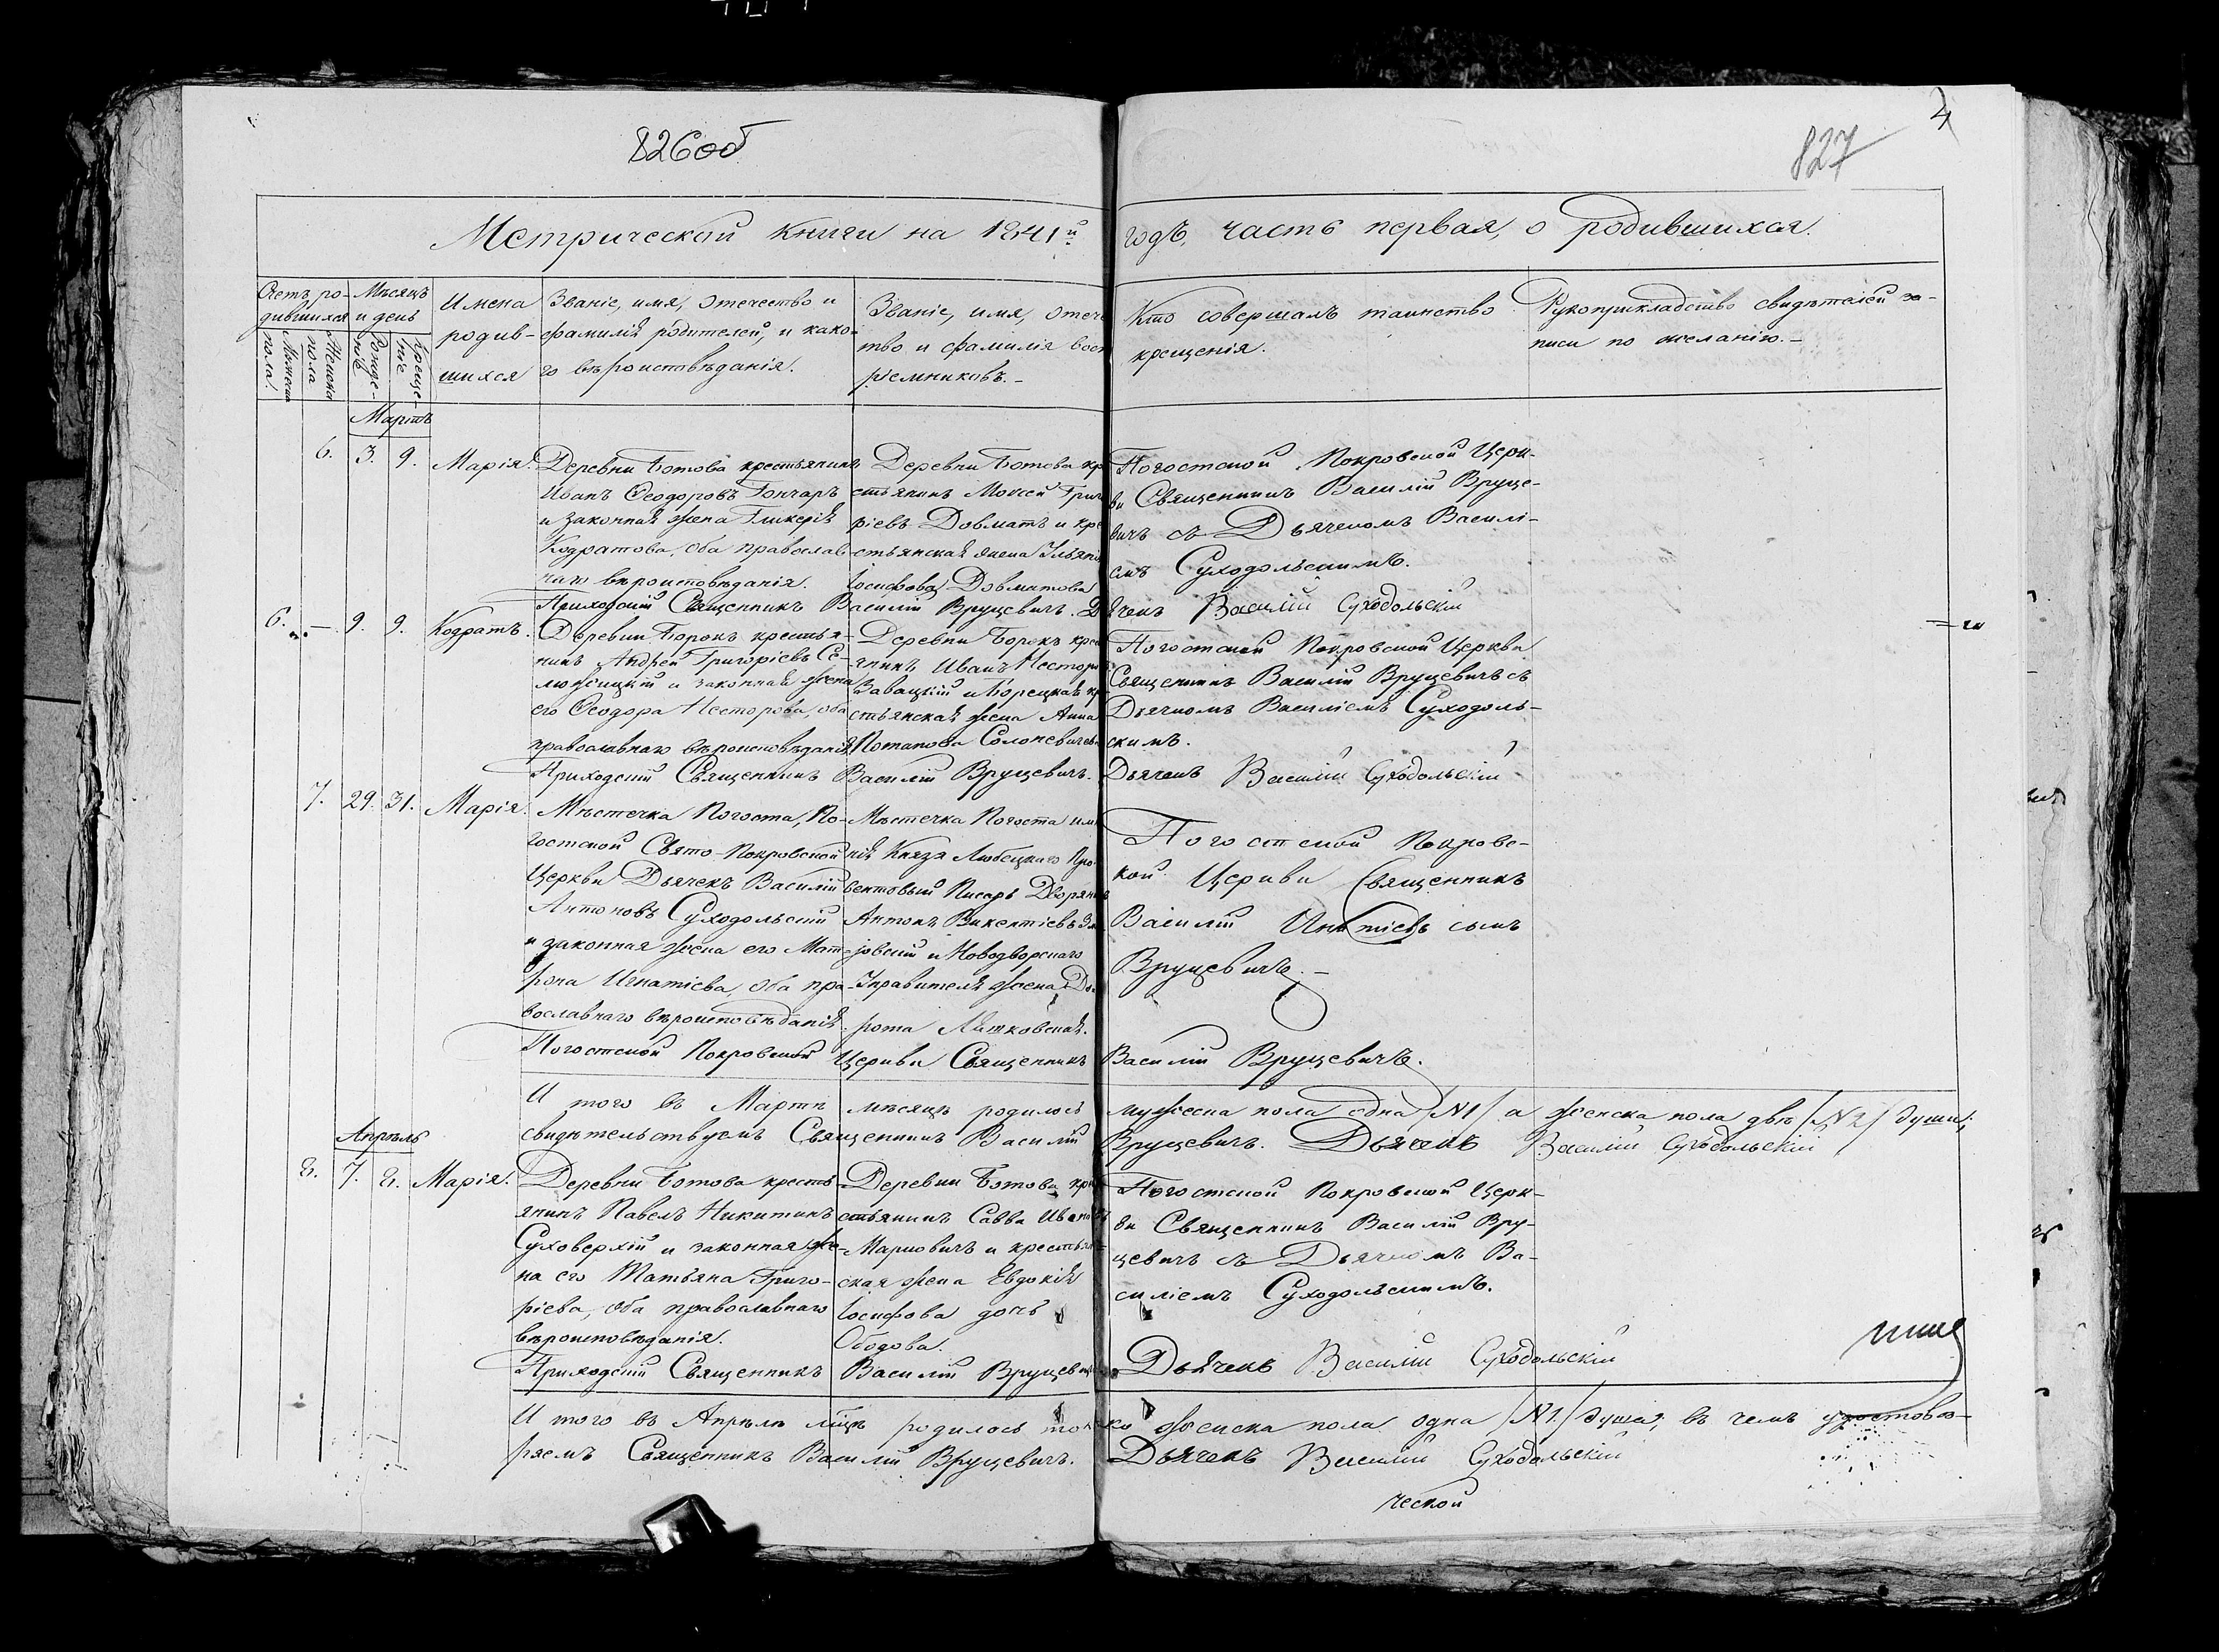 826об
827
4
Метрической книги на 1841й годъ, часть первая, о родившихся.
Счетъ ро-
дившихся
Мѣсяцъ
и день
Имена
родив-
шихся
Званіе, имя, отечество и
фамилія родителей, и како-
го вѣроисповѣданія.
Званіе, имя, отече
тво и фамилія вос
ріемниковъ.-
Кто совершалъ таинство
крещенія.
Рукоприкладство свидѣтелей за-
писи по желанію.-
пола.
Женска
пола
Рожде-
ніе
Креще-
ніе
Мартъ
6. 3. 9. Марія.
Деревни Ботова крестьянинъ
Иванъ Ѳеодоровъ Гончаръ
и законная жена Гликерія
Кодратова, оба православ
наго вѣроисповѣданія.
Деревни Ботова кр
стьянинъ Моисей Григ
ріевъ Довматъ и кре
стьянская жена Ульяна
Іосифова Довматова
Погостской Покровской Церк-
ви Священникъ Василій Вруце-
вичъ съ Дьячкомъ Василі-
емъ Суходольскимъ.
Приходскій Священникъ Василій Вруцевичъ. Дьячекъ Василій Суходольскій
6. — 9. 9. Кодратъ.
Деревни Борокъ крестья-
нинъ Андрей Григоріевъ Се-
люжицкій и законная жена
его Ѳеодора Несторова, оба
православнаго вѣроисповѣданія
Деревни Борокъ крес
янинъ Иванъ Несторо
Завацкій и Борецкая кр
стьянская жена Анна
Потапова Солоневичева
Погостской Покровской Церкви
Священникъ Василій Вруцевичъ съ
Дьячкомъ Василіемъ Суходоль-
скимъ.
Приходскій Священникъ Василій Вруцевичъ. Дьячекъ Василій Суходольскій
7. 29. 31. Марія.
Мѣстечка Погоста, По-
гостской Свято-Покровской
Церкви Дьячекъ Василій
Антоновъ Суходольскій
и законная жена его Мат-
рона Игнатіева, оба пра-
вославнаго вѣроисповѣданія.
Мѣстечка Погоста имѣ
нія Князя Любецкаго Про-
вентовый Писарь Дворянинъ
Антонъ Викентіевъ
овскій и Новодворскаго
Управителя жена До-
рота Лятковская.
Погостской Покровс-
кой Церкви Священникъ
Василій Игнатіевъ сынъ
Вруцевичъ.-
Погостской Покровской Церкви Священникъ Василій Вруцевичъ.
И того въ Мартѣ мѣсяцѣ родилось мужеска пола одна /N1/ а женска пола двѣ /N2/ души;
свидѣтельствуемъ Священникъ Василій Вруцевичъ. Дьячекъ Василій Суходольскій
Апрѣль
8. 7. 8. Марія.
Деревни Ботова кресть-
янинъ Павелъ Никитинъ
Суховерхій и законная же-
на его Татьяна Григо-
ріева, оба православнаго
вѣроисповѣданія.
Деревни Ботова кре
стьянинъ Савва Ивановъ
Марковичъ и крестьян-
ская жена Евдокія
Іосифова дочь
Ободова.
Погостской Покровской Церк-
ви Священникъ Василій Вру-
цевичъ съ Дьячкомъ Ва-
силіемъ Суходольскимъ.
Приходскій Священникъ Василій Вруцевичъ. Дьячекъ Василій Суходольскій
И того въ Апрѣлѣ мцѣ родилось только женска пола одна /N1./ душа, въ чемъ удостовѣ-
ряемъ Священникъ Василій Вруцевичъ. Дьячекъ Василій Суходольскій
ческой